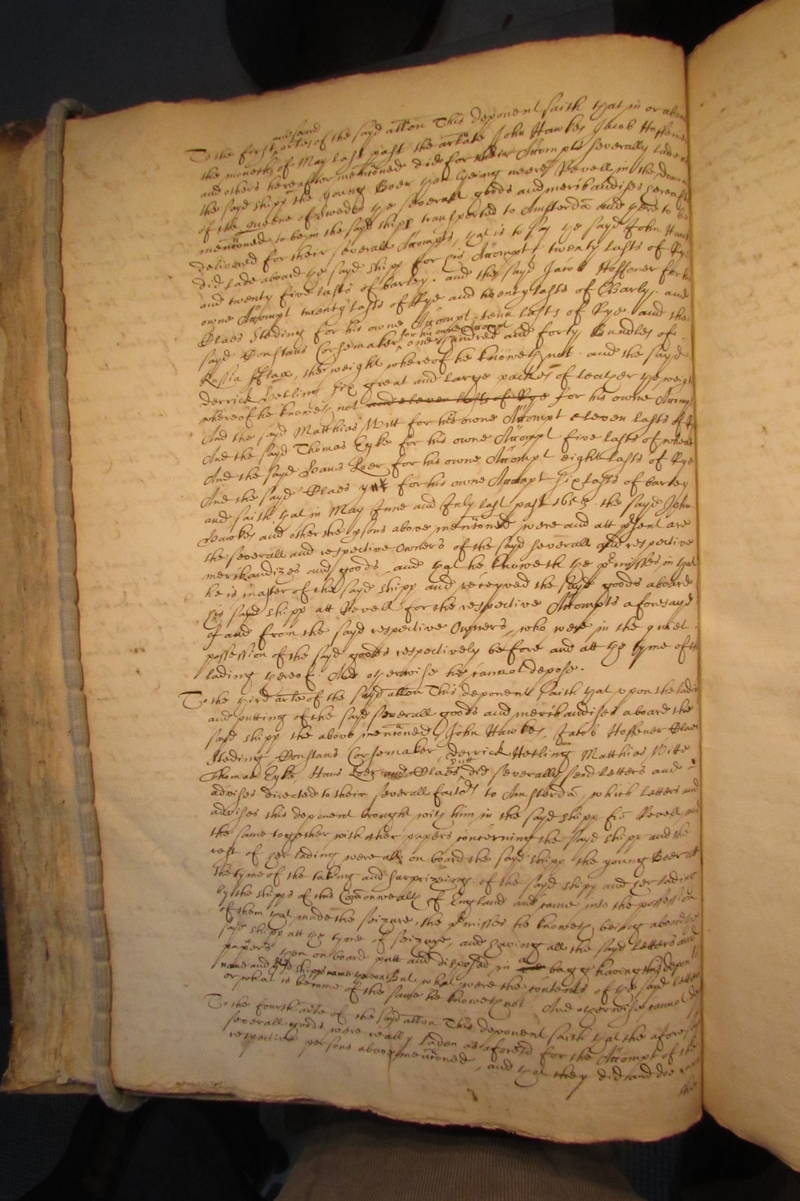 To the first and second artes of the sayd allon This deponent saith that in or about
the moneth of May last past the arlate John Hawkes Jacob Hoffener
and others hereafter mentioned did for their Accompts severally lade on
the sayd shipp the young Boer then lyeing neere Revell in the
of the Queene of Sweden the severall goods and merchandises
mentioned to be in the sayd shipp transported to Amsterda and there to be
delivered for their severall Accompts, that is to say the sayd John Hawkes
did lade aboard the sayd shipp for his Accompt twenty lasts of Rye
and twenty five lasts of barley. and the sayd Jacob Hoffener for his
owne Accompt twenty lasts of Rye and twenty lasts of Barly, and
Claes Steding for his owne Accompt tenn lasts of Rye and the
sayd Constans Corsemaker for his owne Accompt one hundred and forty bundles of
Russia Flax, the weight whereof he knoweth not. and the sayd
Derrick Hetling six great and large packes of leather the weight
whereof he knowes not and eleven lasts of Rye for his owne Accompt
And the sayd Matthias Witt for his owne Accompt eleven lasts of
And the sayd Thomas Eyke for his owne Accompt five lasts of
And the sayd Hans for his owne Accompt eight lasts of Rye
And the sayd Claes for his owne Accompt six lasts of barley
and saith that in May June and July last past the sayd John
Hawkes and other the psons above mentioned were and att psent are
the severall and respective Owners of the sayd severall and respective
merchandizes and goods, and that he knoweth the pmisses in that
he is master of the sayd shipp and receyved the sayd goods aboard
his sayd shipp att Revell for the respective Accompts aforesayd
of and from the sayd respective Owners, who were in the quiet
possession of the sayd goods respectively before and att the tyme of the
lading thereof. And otherwise he cannot depose.
To the third arte of the sayd allon This deponent saith that upon the lading
and putting of the sayd severall goods and merchandises aboard the
sayd shipp the above mentioned John Hawkes, Jacob Hoffener Claes
Steding Constans Corsemaker, Derrick Hetling Matthias Witte
Thomas Eyke Hans and Claes did severally send letters and
advises directed to their severall factors to Amsterda, which letters and
advises this deponent brought with him in the sayd shipp from Revell and
the same together with other papers concerning the sayd shipp and the
rest of her lading were all on board the sayd shipp the young Boer at
the tyme of the taking and surprizeing of the sayd shipp and her lading
by the shipps of this Comonwealth of England and came into the possession
of them that made the seizure, the pmisses he knoweth being aboard the
sayd shipp att the tyme of seizure, and haveing all the sayd letters and
papers then on board putt and disposed in a bagg having this deponts
name and his shipps name thereon But what were the contents of the sayd letters
or what is become of the same he knoweth not. And otherwise cannot depose
To the fourth arte of the sayd allon This deponent saith that the aforesayd
severall goods were really laden as aforesd for the Accompt of the
respective persons above mentioned, and that they did and doe
the